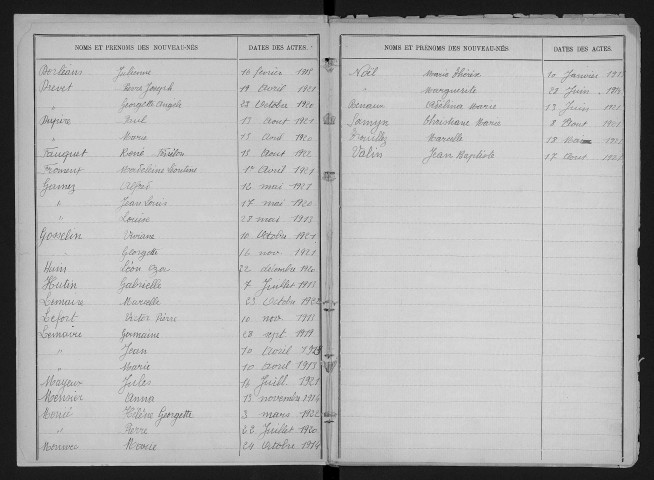 NOMS ET PRENOMS DES NOUVEAU-NÉS DATES DES ACTES.
Dorléans Julienne 16 février 1918
Prevet René Joseph 19 Avril 1921
" Georgette Angèle 28 Octobre 1920
Dupire Paul 13 Aout 1921
" Marie 13 Avril 1920
Fauquet René 15 Aout 1922
Froment Madeleine 1er Avril 1921
Gamez Alfred 16 mai 1921
" Jean Louis 17 mai 1920
" Louise 28 mai 1913
Gosselin Viviane 10 Octobre 1921
Georgette 16 nov 1921
Huin Léon 22 décembre 1920
Hutin Gabrielle 7 Juillet 1913
Lemaire Marcelle 23 Octobre 1922
Lefort Victor Pierre 10 nov 1918
Lemaire Germaine 28 sept 1919
" Jean 10 Avril 1913
" Marie 10 avril 1913
Mayeux Jules 14 Juill. 1921
Moennier Anna 13 novembre 1916
Morié Hélène Georgette 3 mars 1922
" Pierre 22 Juillet 1920
Marie 24 Octobre 1914
NOMS ET PRÉNOMS DES NOUVEAU-NÉS DATES DES ACTES.
Noël Marie Thérèse 10 Janvier
" Marguerite 22 Juin
Renaux Adelina Marie 13 Juin 1921
Samyn Christiane Marie 8 Aout 1921
Marcelle 18
Valin Jean Baptiste 17 Aout